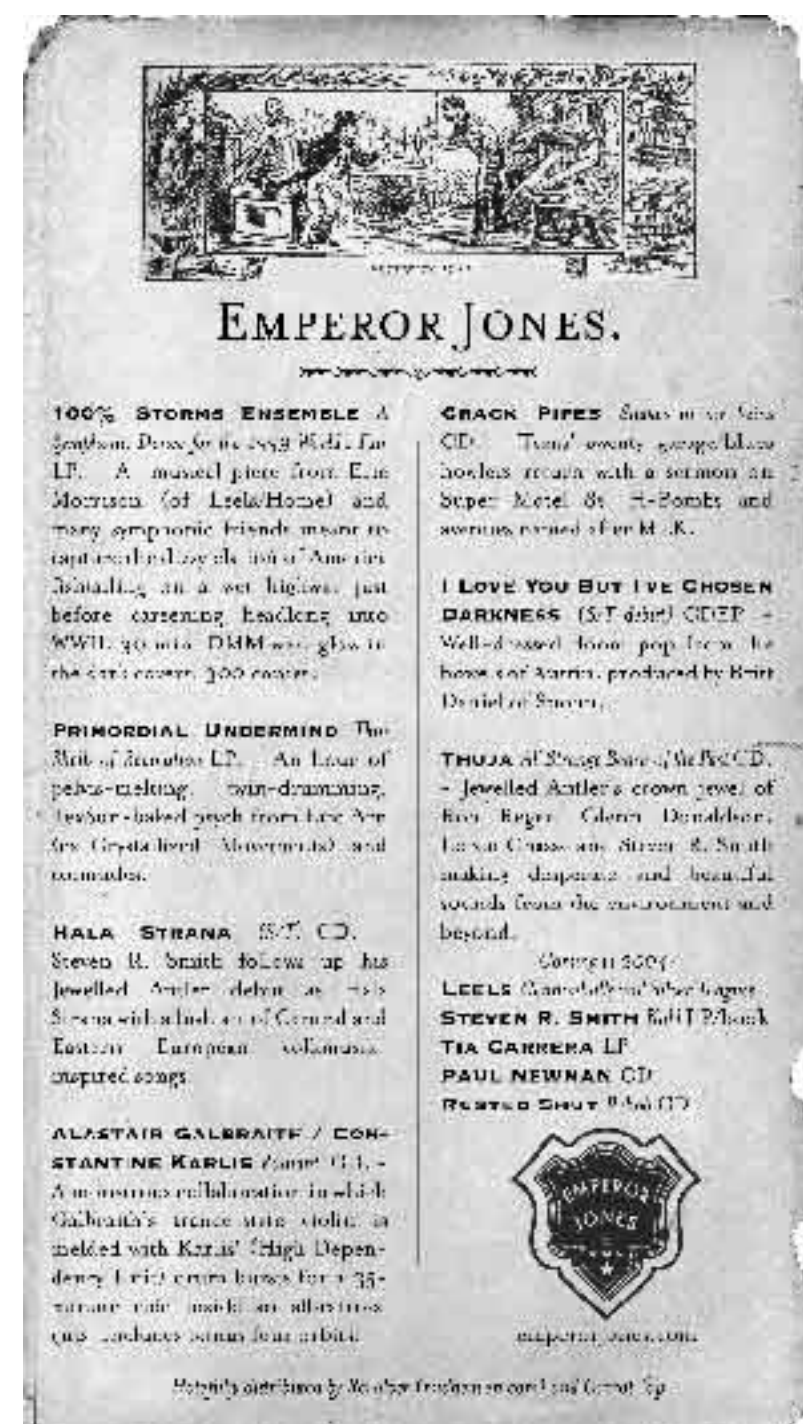 EMPEROR JONES.
100% STORMS ENSEMBLE A
for the 1939 World's Fair
LP. A musical piece from Eric
Morrison (of Leels/Home) and
many symphonic friends meant to
capture the dizzy elation of America
fishtailing on a wet highway just
before careening headlong into
WWII. 30 min. DMM glow in
the dark covers. 300 copies.
PRIMORDIAL UNDERMIND Thin
Shells of Revolution LP. An hour of
pelvis-melting, twin-drumming,
baked psych from Eric Arn
(ex Crystalized Movements) and
comrades.
HALA STRANA (S/T) CD.
Steven R. Smith follows up his
Jewelled Antler debut as Hala
Strana with a of Central and
Eastern European
inspired songs.
ALASTAIR GALBRAITH / CON-
STANTINE KARLIS CD. -
A monstrous collaboration in which
Galbraith's trance state violin is
melded with Karlis' (High Depen-
dency Unit) drum bursts for a 35-
minute ride inside an albatross.
includes bonus four orbits.
CRACK PIPES
CD. Texas' garage/blues
howlers return with a sermon on
Super Motel 8s, H-Bombs and
avenues named after MLK.
I LOVE YOU BUT I'VE CHOSEN
DARKNESS (S/T debut) CDEP -
Well-dressed doom pop from the
bowels of Austin, produced by Britt
Daniel of Spoon.
THUJA All Strange Beasts of the Past CD.
- Jewelled Antler's crown jewel of
Rob Reger, Glenn Donaldson,
Loren Chasse and Steven R. Smith
making desperate and beautiful
sounds from the environment and
beyond.
Coming in 2004:
LEELS
STEVEN R. SMITH Kohl LP/book
TIA CARRERA LP
PAUL NEWMAN CD
RUSTED SHUT CD
EMPEROR
JONES
emperorjones.com
distributed by and Carrot Top